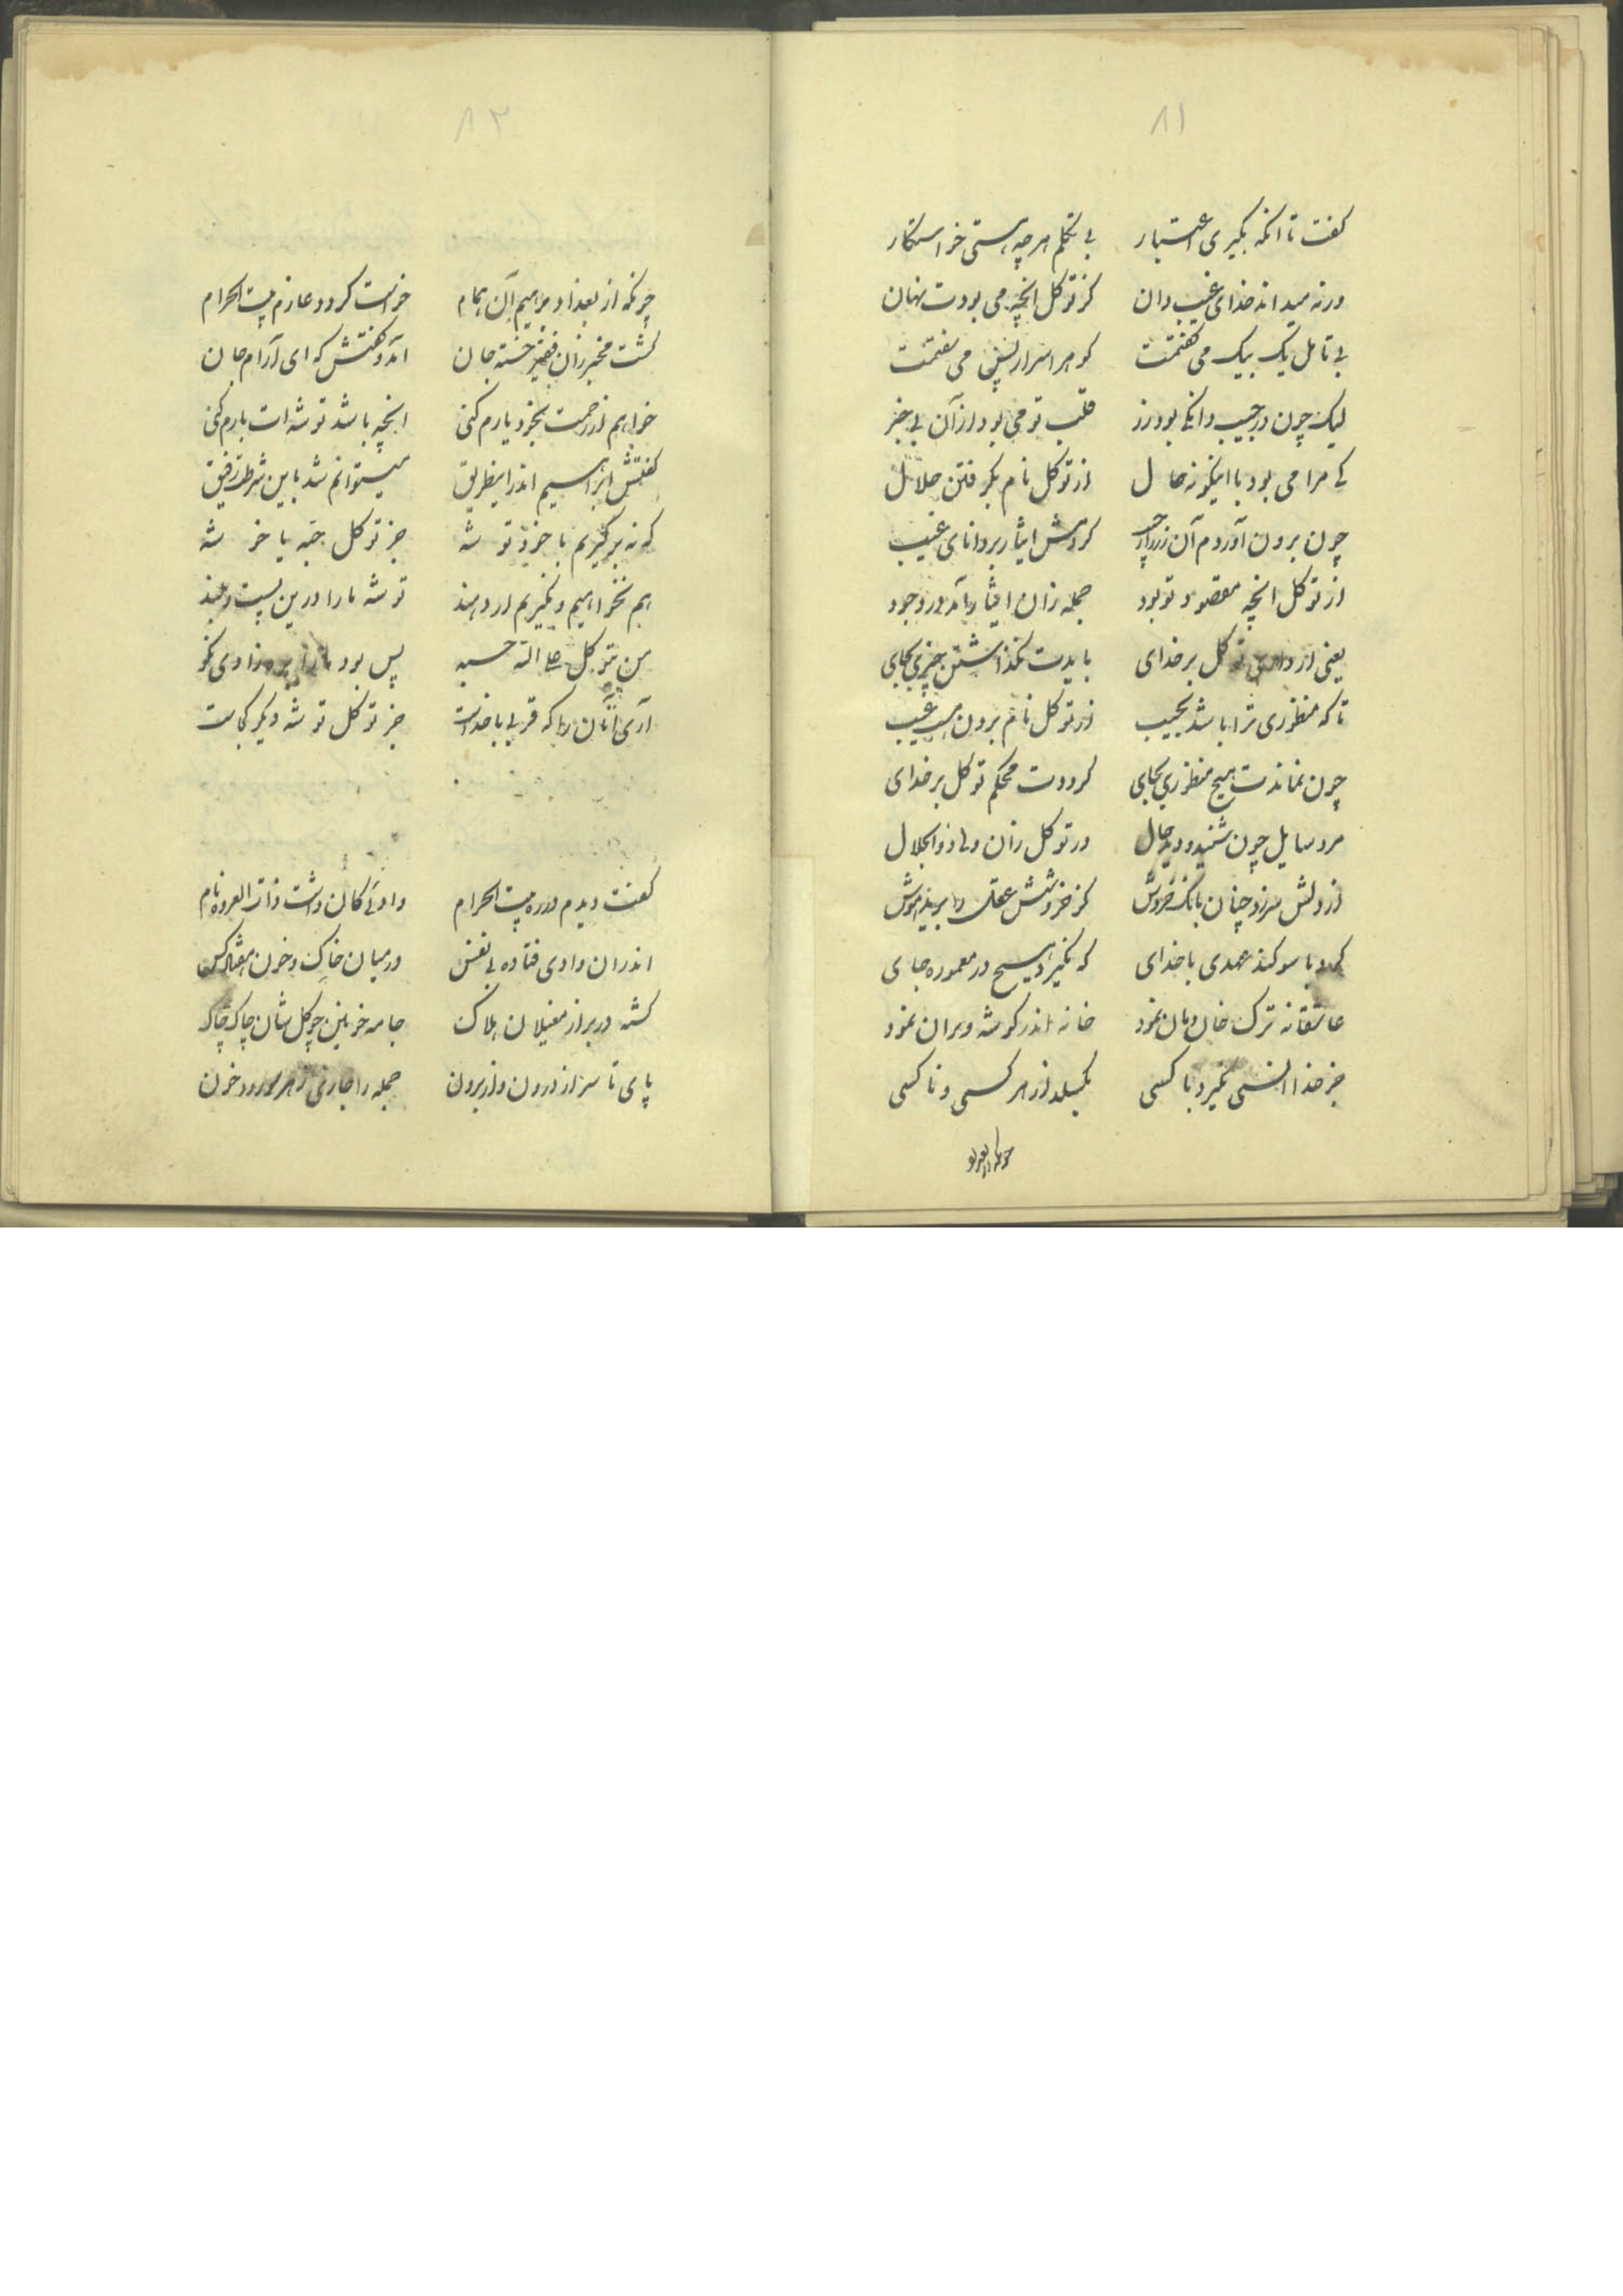 ۸۱
گفت تا آنکه بگیری اعتبار بی تکلم هر چه هستی خواستگار
ورنه میداند خدای غیب دان کز توکل آنچه می بودت نهان
بی تامل یک بیک می گفتمت گوهر اسرار نیکی می سفتمت
لیک چون در جیب دانکی بود زر قلب تو می بود از آن بی خبر
کی مرا می بود با اینگونه حال از توکل نام بگرفتن حلال
چون برون آوردم آن زر را ز جیب کردمش ایثار بر دانای غیب
از توکل آنچه مقصود تو بود جمله زان ایثار آمد در وجود
یعنی ار داری توکل بر خدای بایدت نگذاشتن چیزی بجای
تا که منظوری ترا باشد بجیب از توکل نام بردن هست عیب
چون نماندت هیچ منظوری بجای گرددت محکم توکل بر خدای
مرد سایل چون شنید و دید حال در توکل زان ولی ذوالجلال
از دلش سر زد چنان بانک خروش کز خروشش عقل را پرید هوش
کرد با سوگند عهدی با خدای که نگیرد هیچ در معموره جای
عاشقانه ترک خان و مان نمود خانه اندر گوشه ویران نمود
جز خدا انسی نگیرد با کسی بگسلد از هر کسی و ناکسی
چونکه از بغداد
۸۲
چونکه از بغداد براهیم آن همام خواست گردد عازم بیت الحرام
گشت مخبر زان فقیر خسته جان آمد و گفتش که ای آرام جان
خواهم از رحمت بخود یارم کنی آنچه باشد توشه ات بارم کنی
گفتمش ابراهیم اندر اینطریق میتوانم شد باین شرطت رفیق
که نه برگیریم با خود توشه جز توکل حبه یا خوشه
هم نخواهیم و نگیریم ار دهند توشه ما را درین پست و بلند
من یتوکل علی الله حسبه پس بود ما را زادی نکو
آری آنان را که قربی با خداست جز توکل توشه دیگر کجاست
گفت دیدم در ره بیت الحرام وادئی کان داشت ذات العروه نام
اندران وادی فتاده بی نفس در میان خاک و خون هفتاد کس
گشته در بر از مغیلان هلاک جامه خونین چو گل شان چاک چاک
پای تا سر از درون و از برون جمله را جاری ز هر مو رود خون